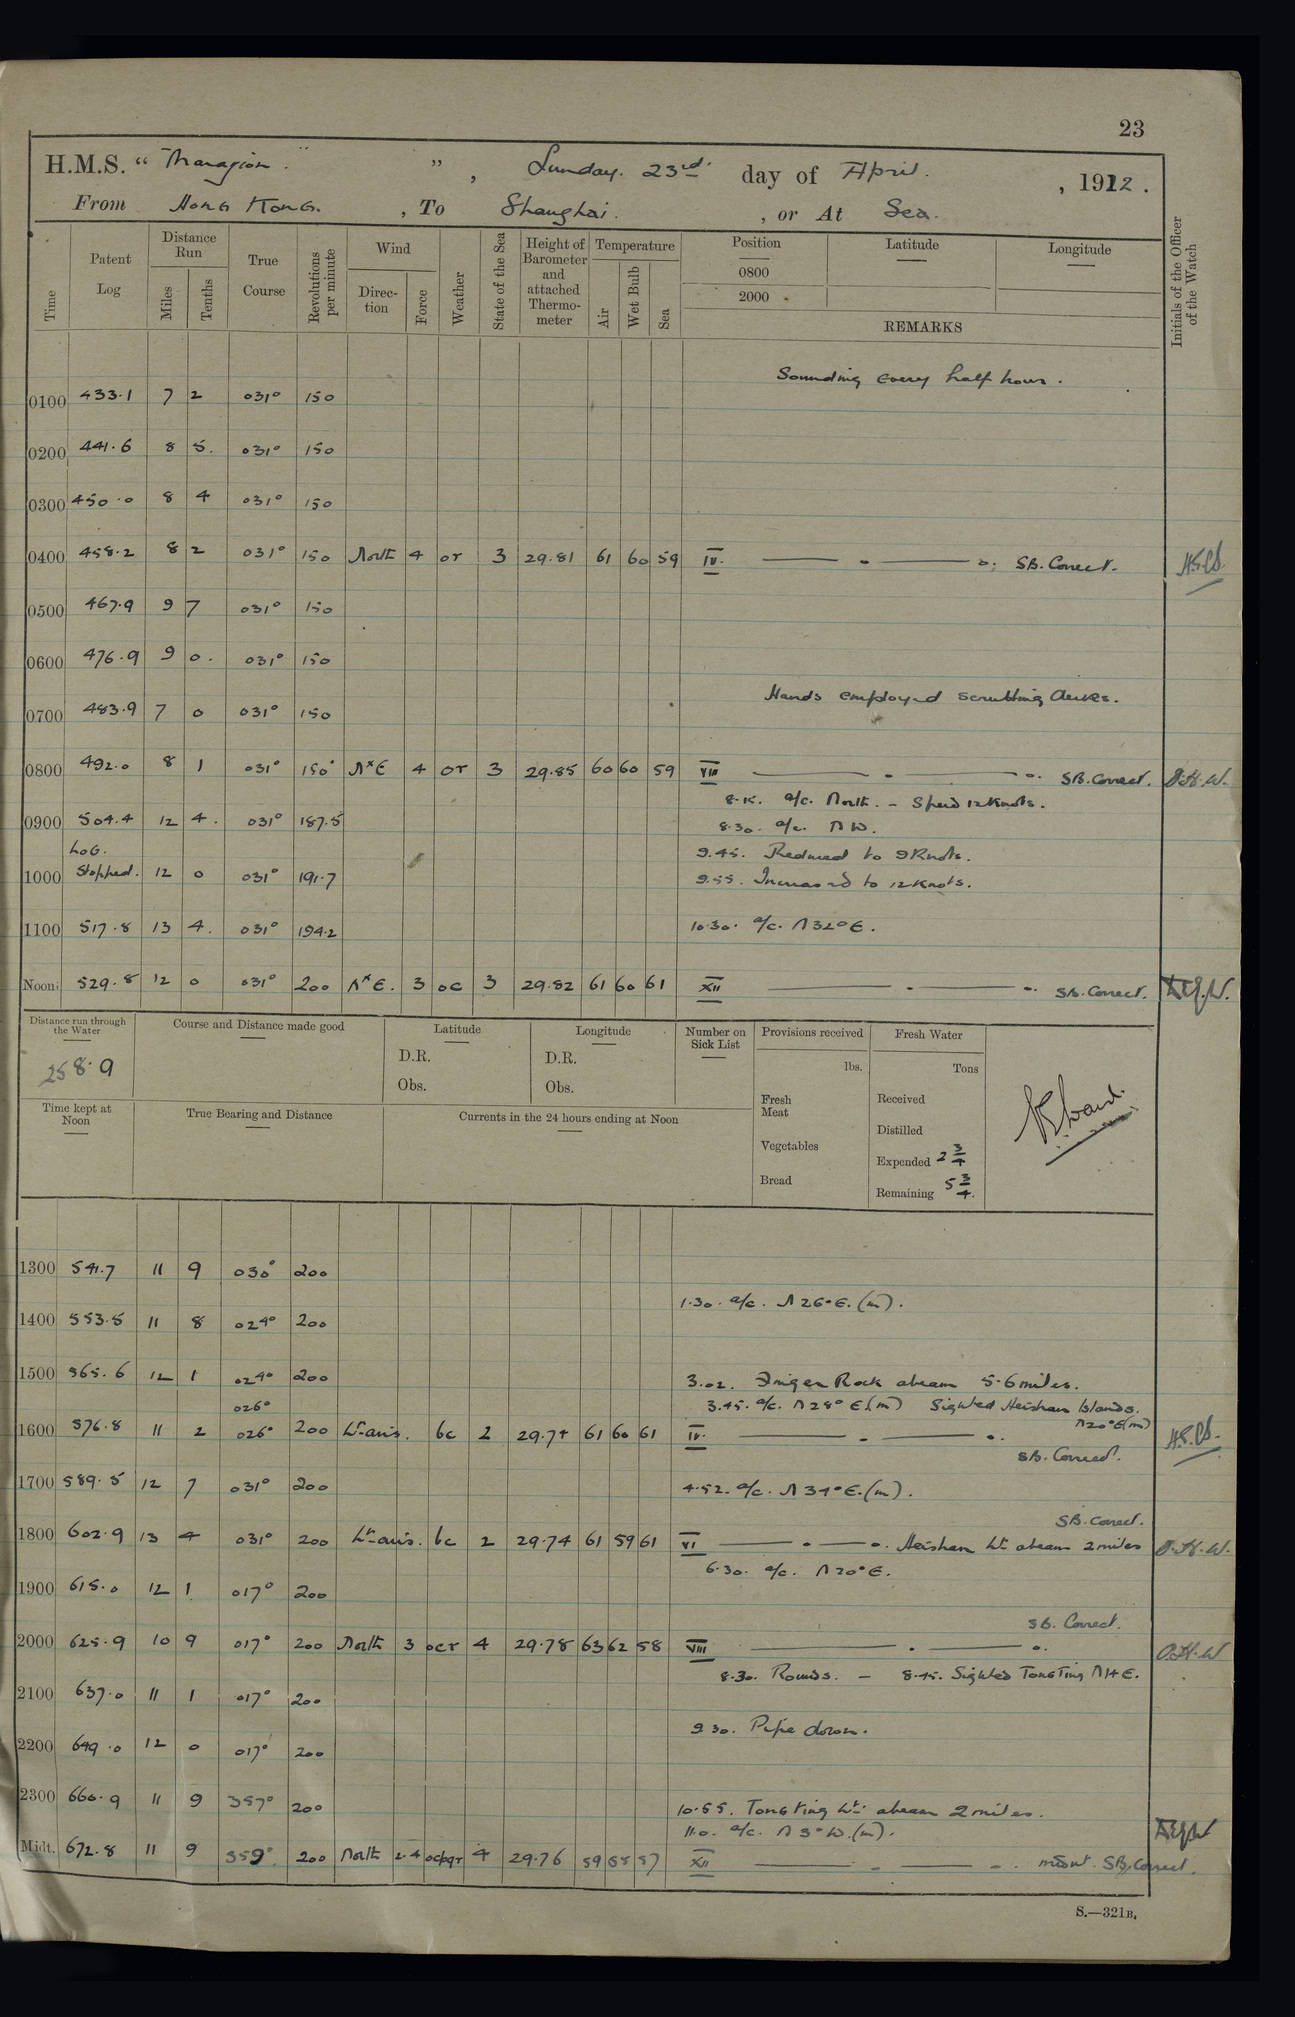 23
H.M.S. “ Marazion ” , Sunday. 23rd day of April. , 1922.
From Hong Kong. , To Shanghai. , or At Sea.
Time Patent Log Distance Run Miles Tenths True Course Revolutions per minute Wind Direction Force Weather State of the Sea Height of Barometer and attached Thermometer Temperature Air Wet Bulb Sea Position 0800 2000 Latitude Longitude REMARKS Initials of the Officer of the Watch
Sounding every half hour.
0100 433.1 7 2 031° 150
0200 441.6 8 5. 031° 150
0300 450.0 8 4 031° 150
0400 458.2 8 2 031° 150 North 4 or 3 29.81 61 60 59 IV. SB. Correct.
0500 467.9 9 7 031° 150
0600 476.9 9 0. 031° 150
Hands employed scrubbing decks.
0700 483.9 7 0 031° 150
0800 492.0 8 1 031° 150 NxE 4 or 3 29.85 60 60 59 VIII SB. Correct. D.H.W.
8.15. a/c. North. - Speed 12 Knots.
0900 504.4 12 4. 031° 187.5 8.30. a/c. NW.
9.45. Reduced to 9 Knots.
1000 Log. Stopped. 12 0 031° 191.7 9.55. Increased to 12 Knots.
1100 517.8 13 4. 031° 194.2 10.30. a/c. N32°E.
Noon 529.8 12 0 031° 200 NxE. 3 oc 3 29.82 61 60 61 XII SB. Correct.
Distance run through the Water Course and Distance made good Latitude Longitude Number on Sick List Provisions received Fresh Water
258.9 D.R. D.R. lbs. Tons
Obs. Obs. Fresh Meat Received
Time kept at Noon True Bearing and Distance Currents in the 24 hours ending at Noon Distilled
Vegetables Expended 2 3/4
Bread Remaining 5 3/4.
1300 541.7 11 9 030° 200
1.30. a/c. N26°E.(m).
1400 553.5 11 8 024° 200
1500 565.6 12 1 024° 200 3.02. Finger Rock abeam 5.6 miles.
026° 3.45. a/c. N28°E(m) Sighted Heishan Islands. N20°E(m)
1600 576.8 11 2 026° 200 Lt airs. bc 2 29.74 61 60 61 IV.
SB. Correct.
1700 589.5 12 7 031° 200 4.52. a/c. N34°E.(m).
SB. Correct.
1800 602.9 13 4 031° 200 Lt airs. bc 2 29.74 61 59 61 VI Heishan Lt. abeam 2 miles D.H.W.
6.30. a/c. N20°E.
1900 615.0 12 1 017° 200
SB. Correct.
2000 625.9 10 9 017° 200 North 3 ocr 4 29.78 63 62 58 VIII D.H.W
8.30. Rounds. - 8.45. Sighted Tongting N14E.
2100 637.0 11 1 017° 200
9.30. Pipe down.
2200 649.0 12 0 017° 200
2300 660.9 11 9 357° 200 10.55. Tongting Lt. abeam 2 miles.
11.0. a/c. N3°W.(m).
Midt. 672.8 11 9 359° 200 North 2.4 ocpqr 4 29.76 59 58 57 XII SB, Correct.
S.—321B.